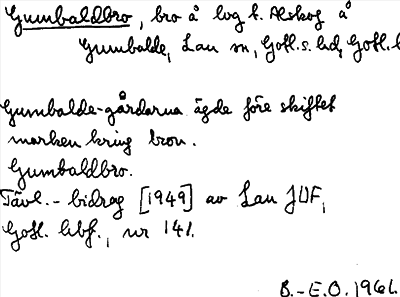 Gumbaldbro, bro å väg t. Alskog å
Gumbalde, Lau sn, Gotl. s. hd, Gotl. l.
Gumbalde-gårdarna ägde före skiftet
marken kring bron.
Gumbaldbro.
Tävl.-bidrag [1949] av Lau JUF,
Gotl. hbf., nr 141.
B.-E.O. 1961.